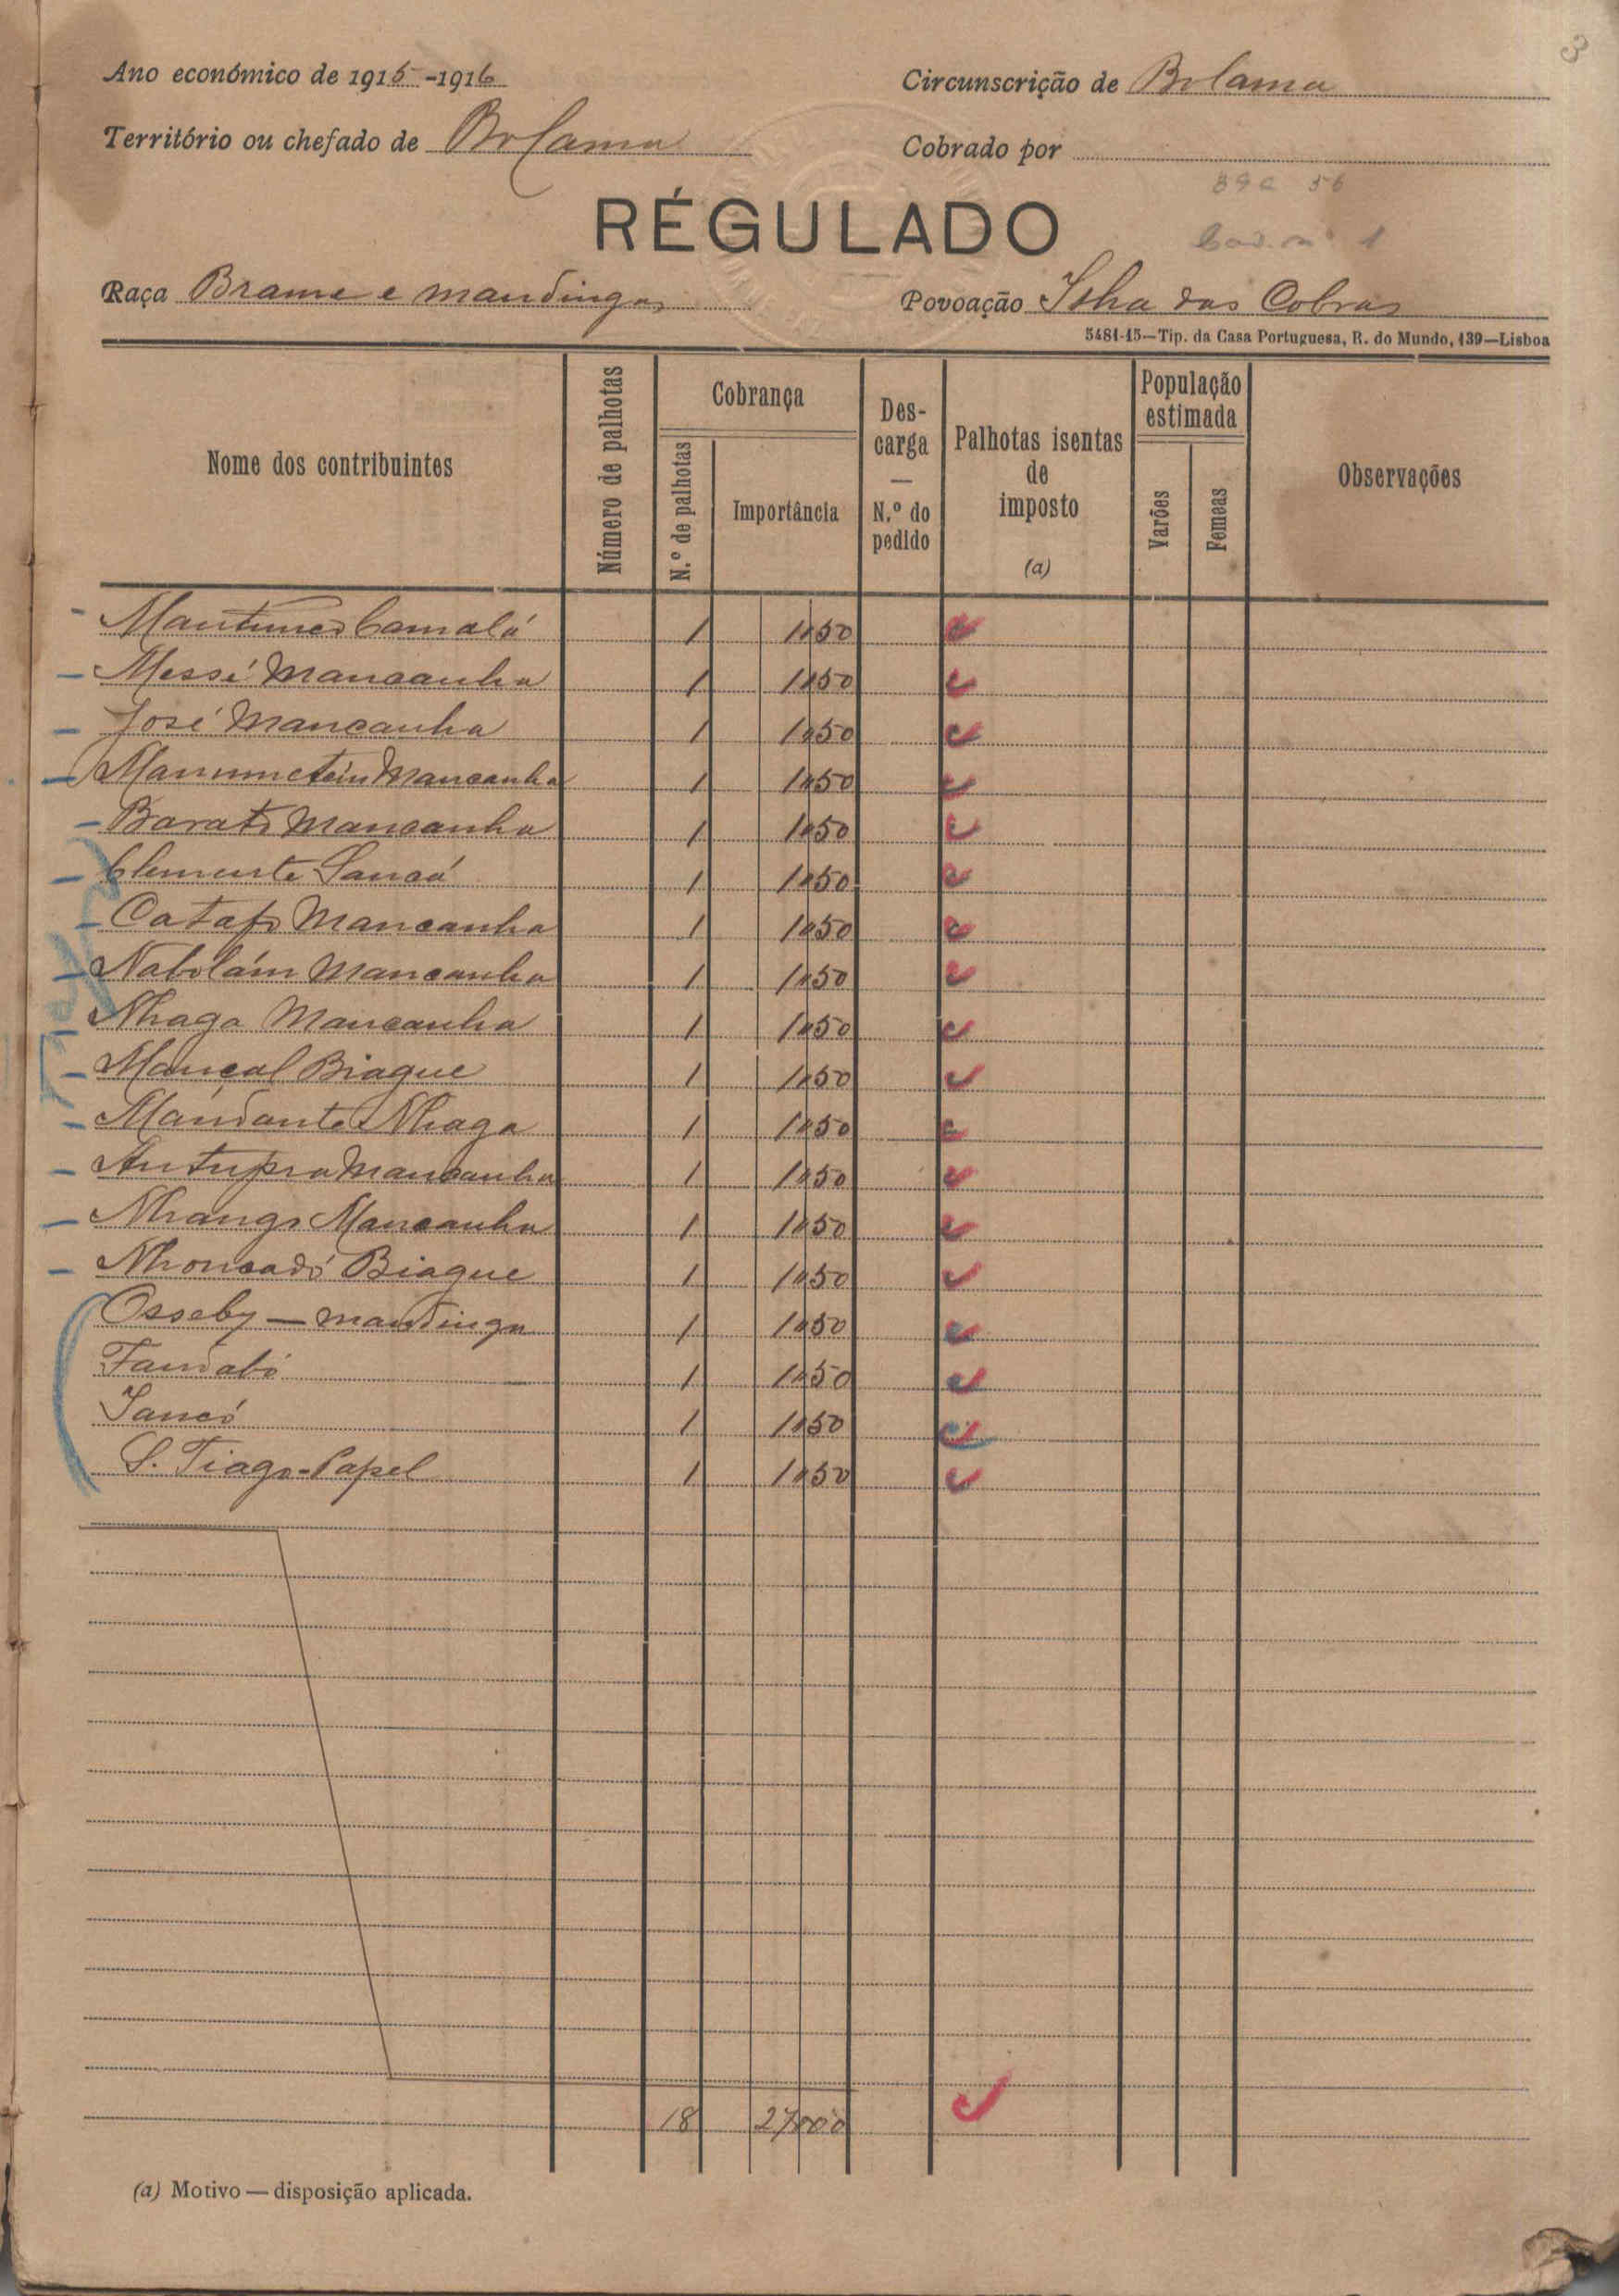 3
Ano económico de 1915-1916
Circunscrição de Bolama
Território ou chefado de Bolama
Cobrado por
RÉGULADO
1
Raça Brame e mandingas
Povoação Ilha das Cobras
5481-15—Tip. da Casa Portuguesa, R. do Mundo, 139—Lisboa
Nome dos contribuintes
Número de palhotas
Cobrança
N.º de palhotas
Importância
Des-
carga
—
N.º do
pedido
Palhotas isentas
de
imposto
(a)
População
estimada
Varões
Femeas
Observações
Camalá 1 1$50
Messé Mancanha 1 1$50
José Mancanha 1 1$50
Mancanha 1 1$50
Barato Mancanha 1 1$50
Clemente Sancá 1 1$50
Catafo Mancanha 1 1$50
Nabolám Mancanha 1 1$50
Nhaga Mancanha 1 1$50
Mancal Biague 1 1$50
Mandante Nhaga 1 1$50
Antupra Mancanha 1 1$50
Nhango Mancanha 1 1$50
Nhoncadó Biague 1 1$50
Osseby — mandinga 1 1$50
Fandabó 1 1$50
Sancó 1 1$50
S. Tiago-Papel 1 1$50
18 27$00
(a) Motivo — disposição aplicada.